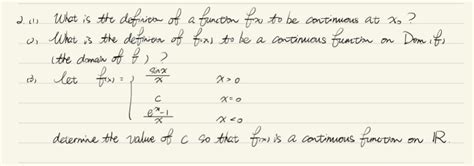 2.(1) What is the definition of a function f(x) to be continuous at x₀?
(2) What is the definition of f(x) to be a continuous function on Dom(f)
(the domain of f)?
(3) let f(x) = { sinx/x x>0
c x=0
eˣ-1/x x<0
determine the value of c so that f(x) is a continuous function on ℝ.